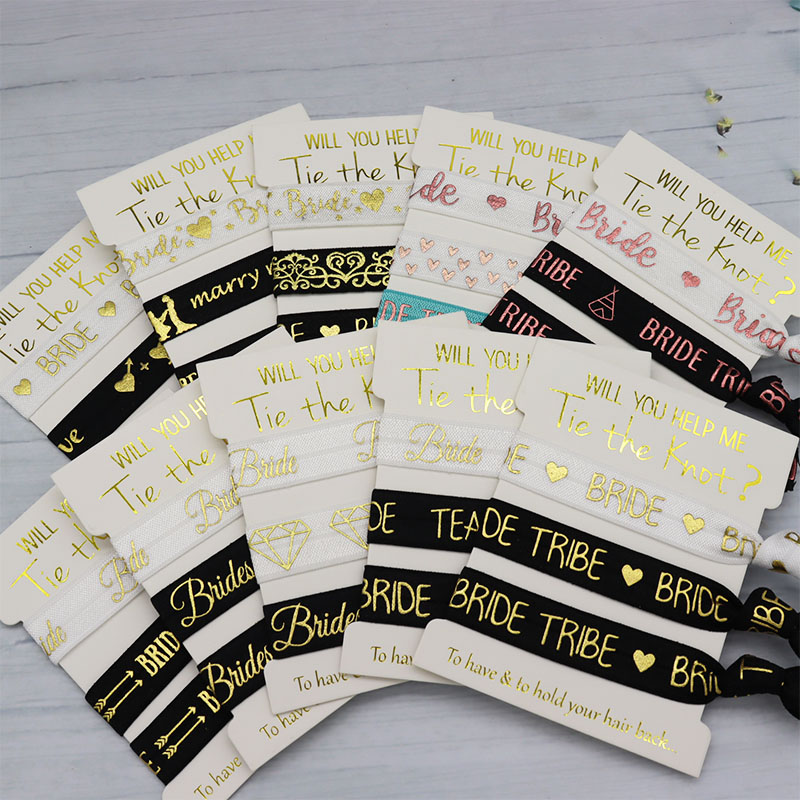 WILL YOU HELP ME
Tie the Knot
BRIDE
WILL YOU HELP
Tie the Kno
Bride Bri
marry
WILL YOU HELP
Tie the K
Bride
WILL YOU HELP ME
Tie the
Bride
BRIDE
WILL YOU HELP ME
Tie the Knot?
Bride Bride
TRIBE BRIDE TRIB
TRIBE BRIDE TRIB
WILL YOU HELP
Tie the
Bride
BRID
To have
WILL YOU HELP
Tie the
Bride
Brides
Brides
To have
WILL YOU HELP ME
Tie the
Bride
Brides
To have &
WILL YOU HELP ME
Tie the K
Bride
DE TEA
BRIDE
To have
WILL YOU HELP ME
Tie the Knot?
DE BRIDE BRID
DE TRIBE BRIDE TRIBE
BRIDE TRIBE BRID T
To have & to hold your hair back..